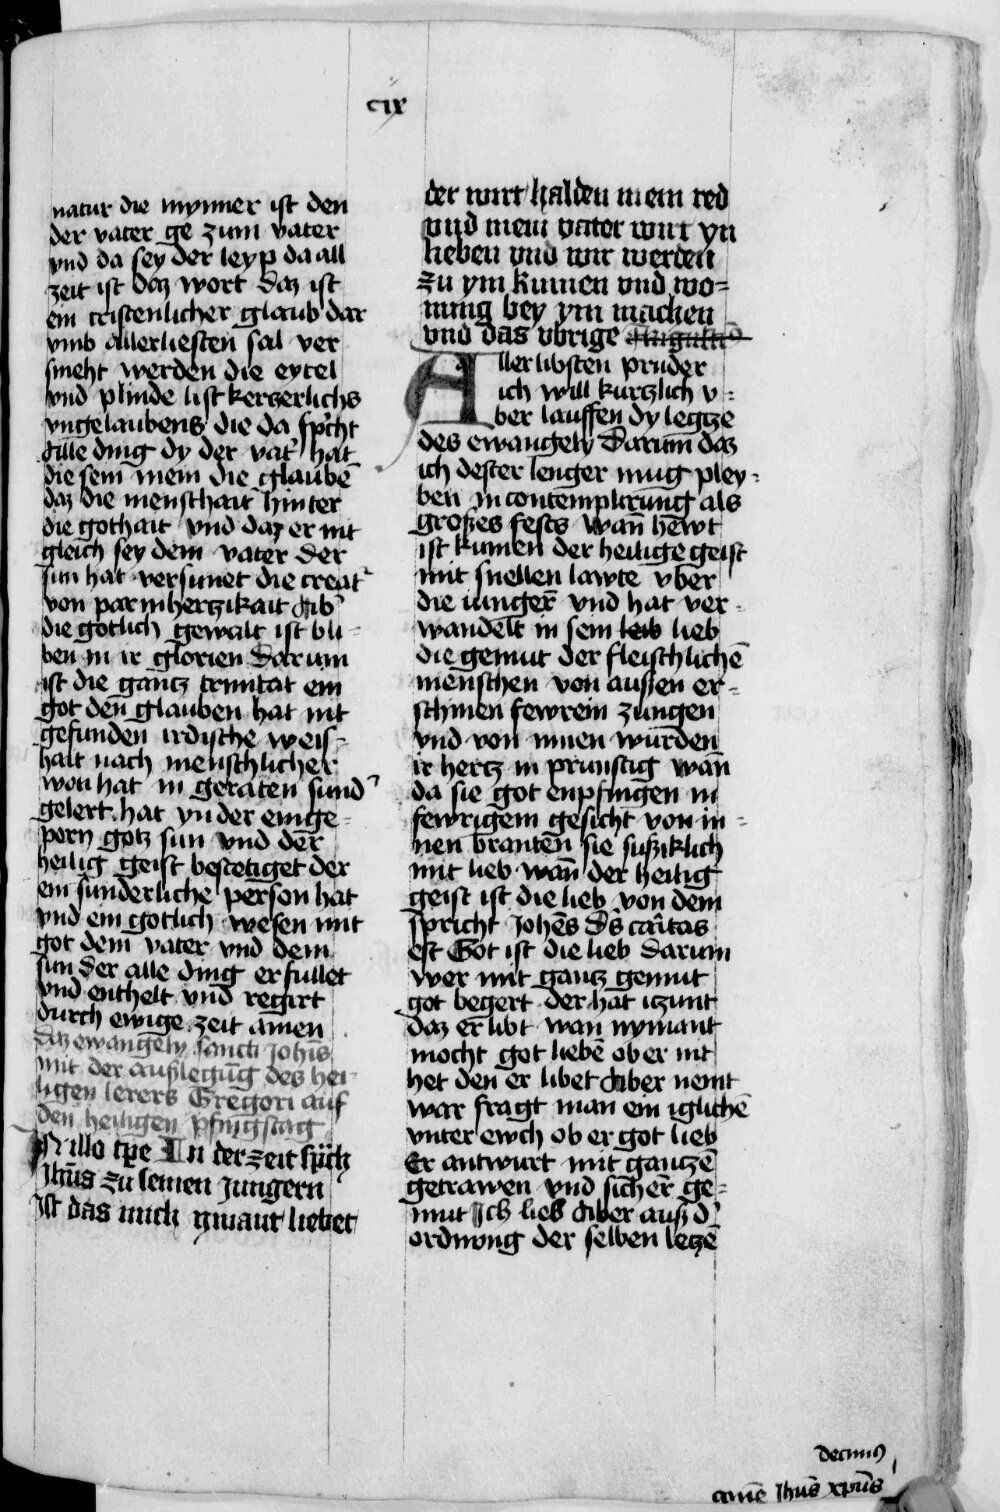 cix
natur die mynner ist den
der vater ge zum vater
vnd da sey der leyp da all
zeit ist daz wort daz ist
ein cristenlicher glaub dar
vmb allerliesten sal ver
smeht werden die eytel
vnd plinde list kerzerlichs
vngelaubens die da spͤcht
alle ding dy der vatˀ hat
die sein mein die glaubē
daz die menschait hinter
die gothait vnd daz er nit
gleich sey dem vater der
sun hat versunet die creatˀ
von parmhertzikait abˀ
die gotlich gewalt ist bli-
ben in ir glorien darum
ist die gantz trinitat ein
got den glauben hat nit
gefunden irdische weis-
hait nach menschlicher
won hat in geraten sundˀ
gelert hat yn der einge-
porn gotz sun vnd der
heilig geist bestetiget der
ein sunderliche person hat
vnd ein gotlich wesen mit
got dem vater vnd dem
sun der alle ding erfullet
vnd enthelt vnd regirt
durch ewige zeit amen
Daz ewangely sancti Johīs
mit der auszlegūg des hei-
ligen lerers Gregori auf
den heiligen pfingstag
IN illo tp̄e In der zeit sp̄ch
Jhūs zu seinen jungern
Ist das mich ymant liebet
der wirt halden mein red
vnd mein vater wirt yn
lieben vnd wir werden
zu ym kumen vnd wo-
nung bey ym machen
vnd das vbrige
Aller libsten pruder
ich will kurtzlich v-
ber lauffen dy legtze
des ewangely darum daz
ich dester lenger mug pley-
ben in contemplirung als
großes fests wañ hewt
ist kumen der heilige geist
mit snellen lawte vber
die iungerˉ vnd hat ver-
wandelt in sein leib lieb
die gemut der fleischlichē
menschen von außen er-
schinen fewrein zungen
vnd von innen wurden
ir hertz in prunstig wañ
da sie got enpfingen in
fewrigem gesicht von in-
nen branten sie sußiklich
mit lieb wañ der heilig
geist ist die lieb von dem
spricht Johēs Ds caritas
est Got ist die lieb darum
wer mit gantz gemut
got begert der hat iczunt
daz er libt wan nymant
mocht got liebē ob er nit
het den er libet aber nemt
war fragt man ein iglichē
vnter ewch ob er got lieb
Er antwurt mit gantzē
getrawen vnd sicher ge-
mut Ich lieb aber auß dˀ
ordnung der selben letzē
decimus
amē Jhūs xpūs